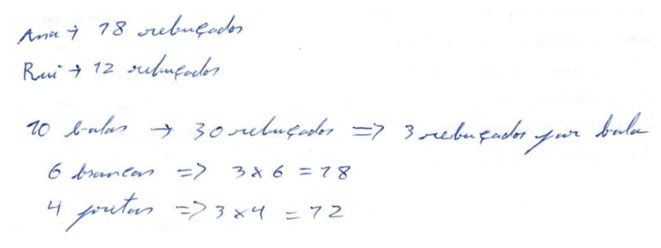 Ana → 18 rebuçados
Rui → 12 rebuçados
10 bolas → 30 rebuçados => 3 rebuçados por bola
6 brancas => 3 x 6 = 18
4 pretas => 3 x 4 = 12